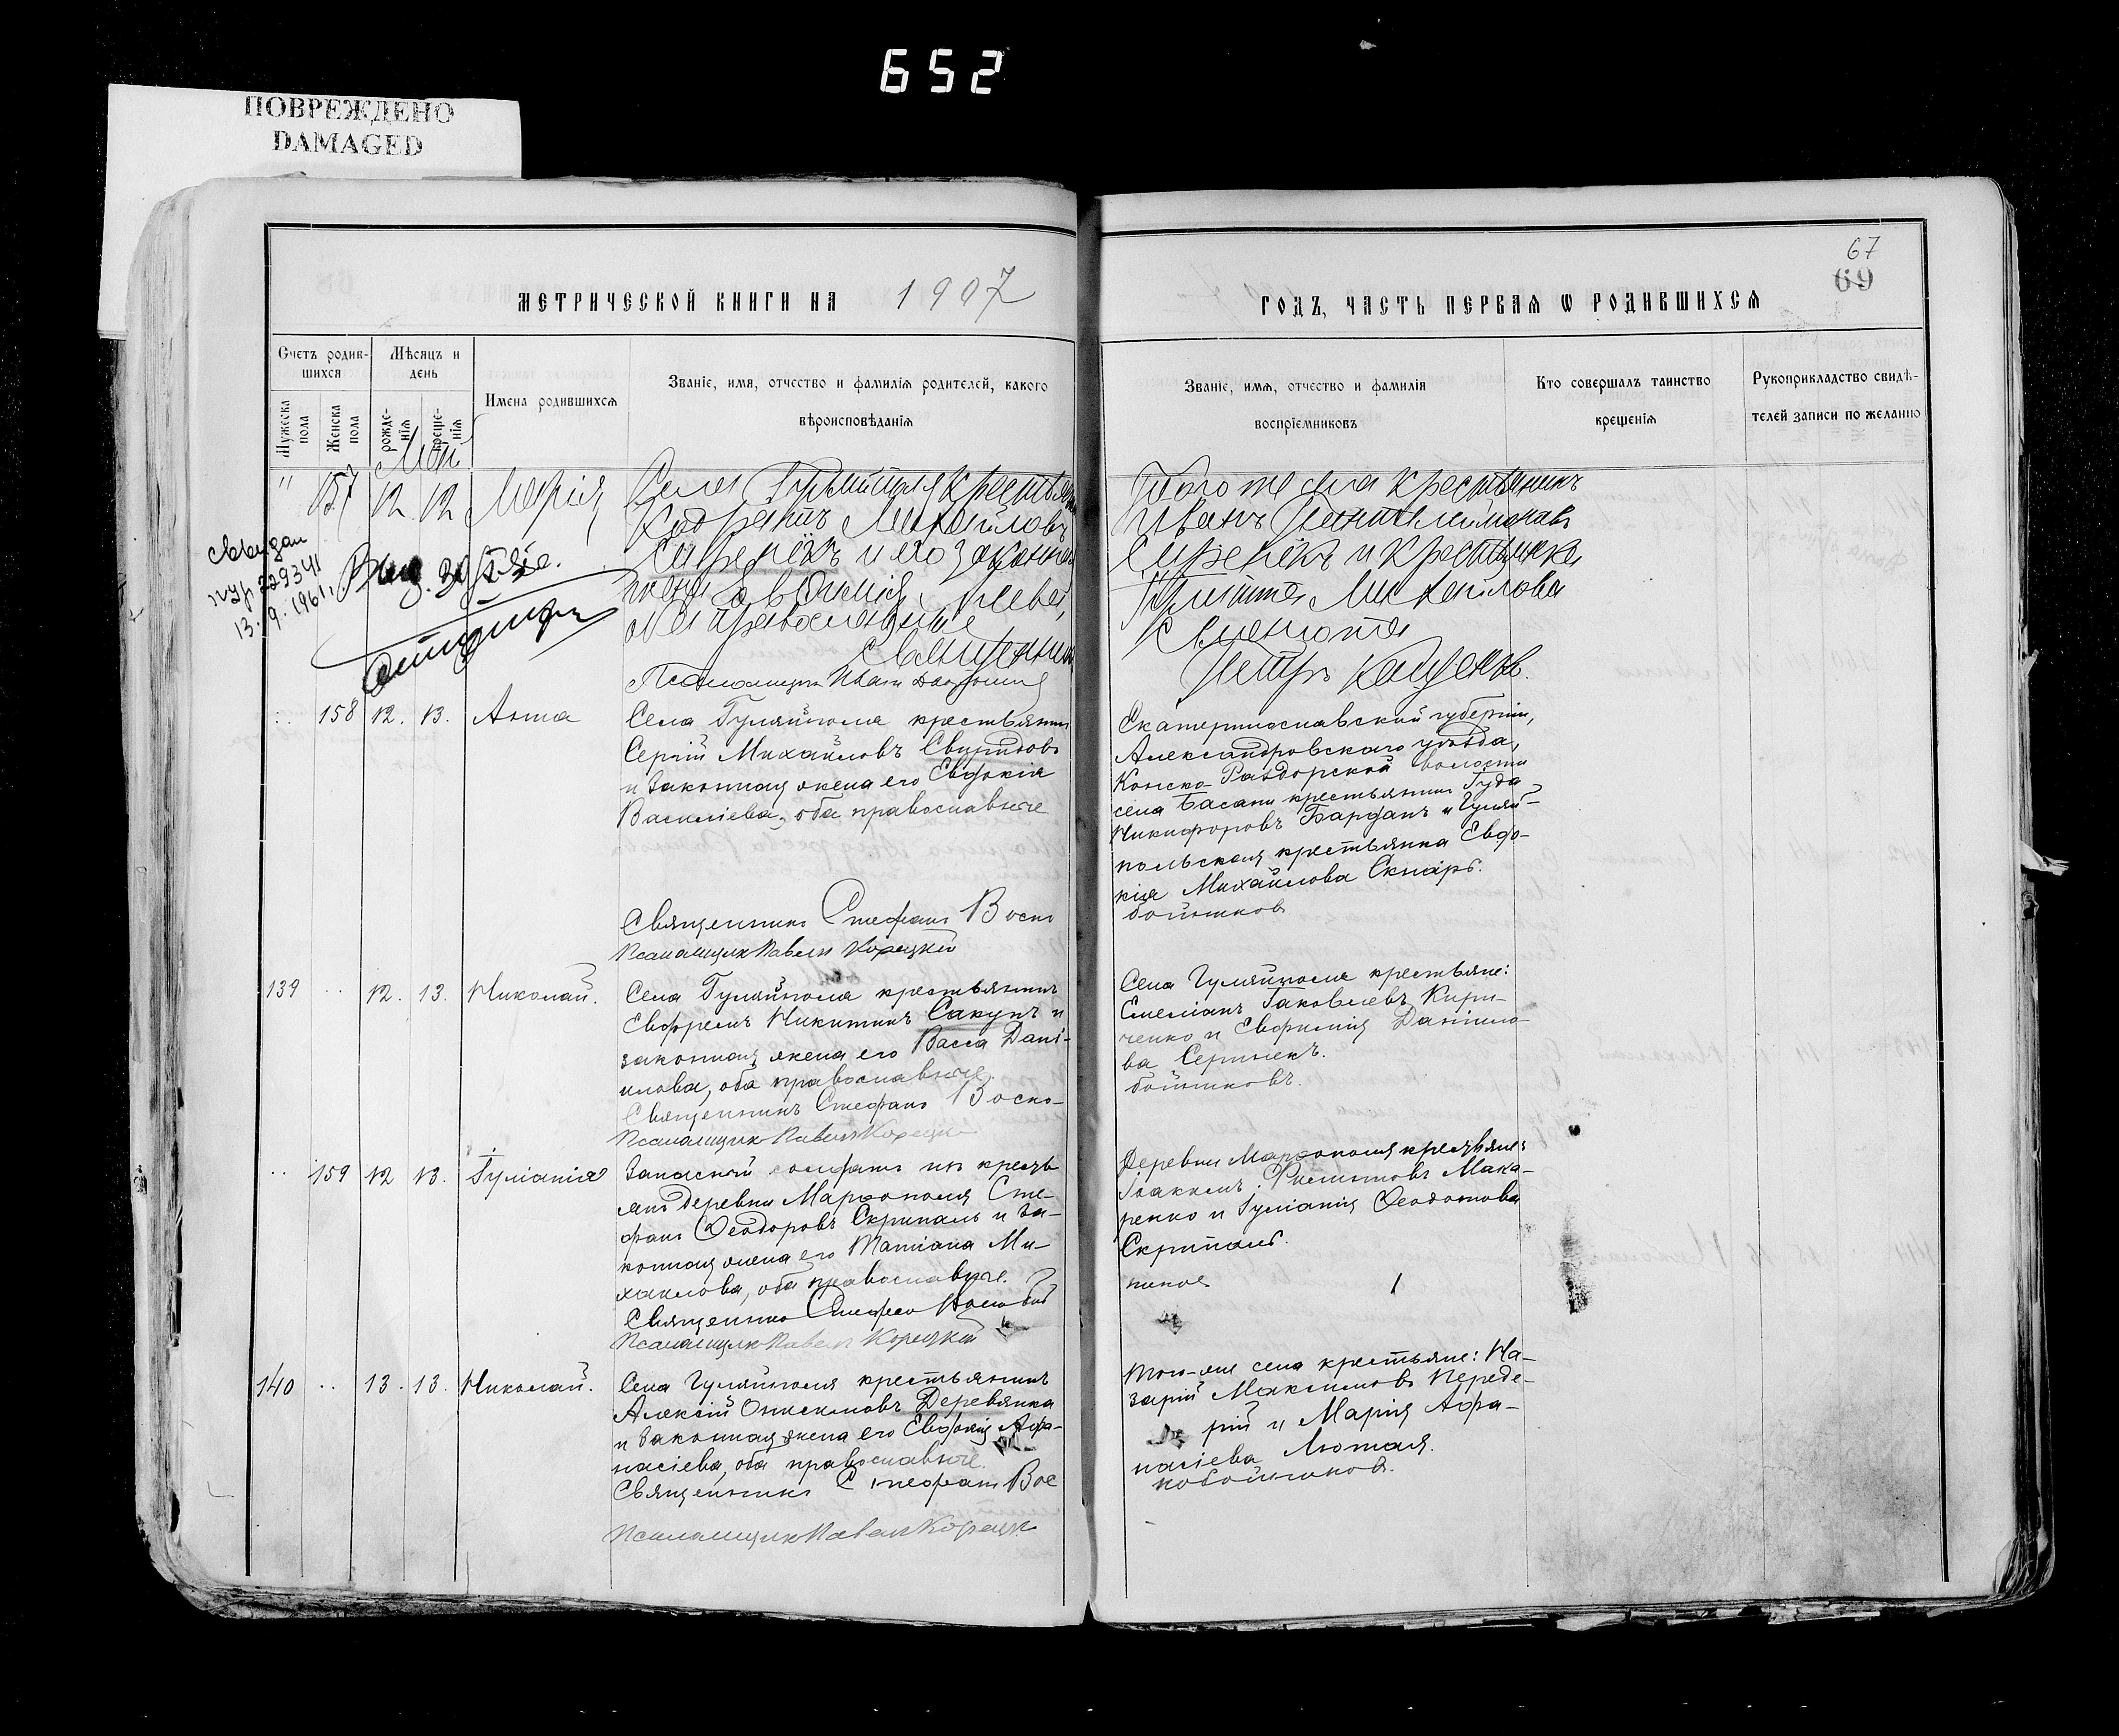 652
ПОВРЕЖДЕНО
DAMAGED
67
69
МЕТРИЧЕСКОЙ КНИГИ НА 1907
ГОДЪ, ЧАСТЬ ПЕРВАЯ Ѡ РОДИВШИХСЯ
Счетъ родив-
шихся
Мѣсяцъ и
день
Мужеска
пола
Женска
пола
рожде-
нія
креще-
нія
Имена родившихся
Званіе, имя, отчество и фамилія родителей, какого
вѣроисповѣданія
Званіе, имя, отчество и фамилія
воспріемниковъ
Кто совершалъ таинство
крещенія
Рукоприкладство свидѣ-
телей записи по желанію
Май
" 157 12 12 Марія
Села Гуляйполя крестьян
Михайловъ
и его законная
жена Евдокія
оба православные
Священник
Псаломщикъ Иван
229341
13.9.1961.
Того же села крестьянинъ
Иванъ Пантелеимоновъ
и крестьянка
Михайлова
Петръ
158 12. 13. Анна
Села Гуляйполя крестьянин
Сергій Михайловъ Свиридовъ
и законная жена его Евдокія
Василіева, оба православные
Священникъ Стефанъ Воск
Псаломщикъ Павелъ Корецкій
Екатеринославской губерніи,
Александровскаго уѣзда,
Конско-Раздорской волости
села Басани крестьянин Гуда
Никифоровъ Барданъ и Гуляй-
польская крестьянка Евдо-
кія Михайлова Скнаръ.
бойников
139 .. 12. 13. Николай.
Села Гуляйполя крестьянинъ
Евфремъ Никитинъ Сакунъ и
законная жена его Васса Дані-
илова, оба православные.
Священникъ Стефанъ Воско-
Псаломщикъ Павелъ Корецк
Села Гуляйполя крестьяне:
Емеліанъ Іаковлевъ Кири-
ченко и Евфимія Даніило-
ва
бойниковъ.
.. 159 12 13. Іуліанія
Запасный солдатъ изъ кресть
янъ деревни Марфополя Сте-
фанъ Ѳеодоровъ Скрипаль и за-
конная жена его Татіана Ми-
хаилова, оба православные.
Священникъ Стефан
Псаломщикъ Павелъ Корецкій
Деревни Марфополя крестьяне:
Іоакимъ Филипповъ Мака-
ренко и Іуліанія Ѳеодотова
Скрипаль.
140 .. 13. 13. Николай.
Села Гуляйполя крестьянинъ
Алексій Онисимовъ Деревянка
и законная жена его Евдокія Афа-
насіева, оба православные.
Священникъ Стефанъ Вос
Псаломщикъ Павелъ Корецк
Того-же села крестьяне: На-
зарій Максимовъ Переде-
рій и Марія Афа-
насіева Лютая.
нобойников.